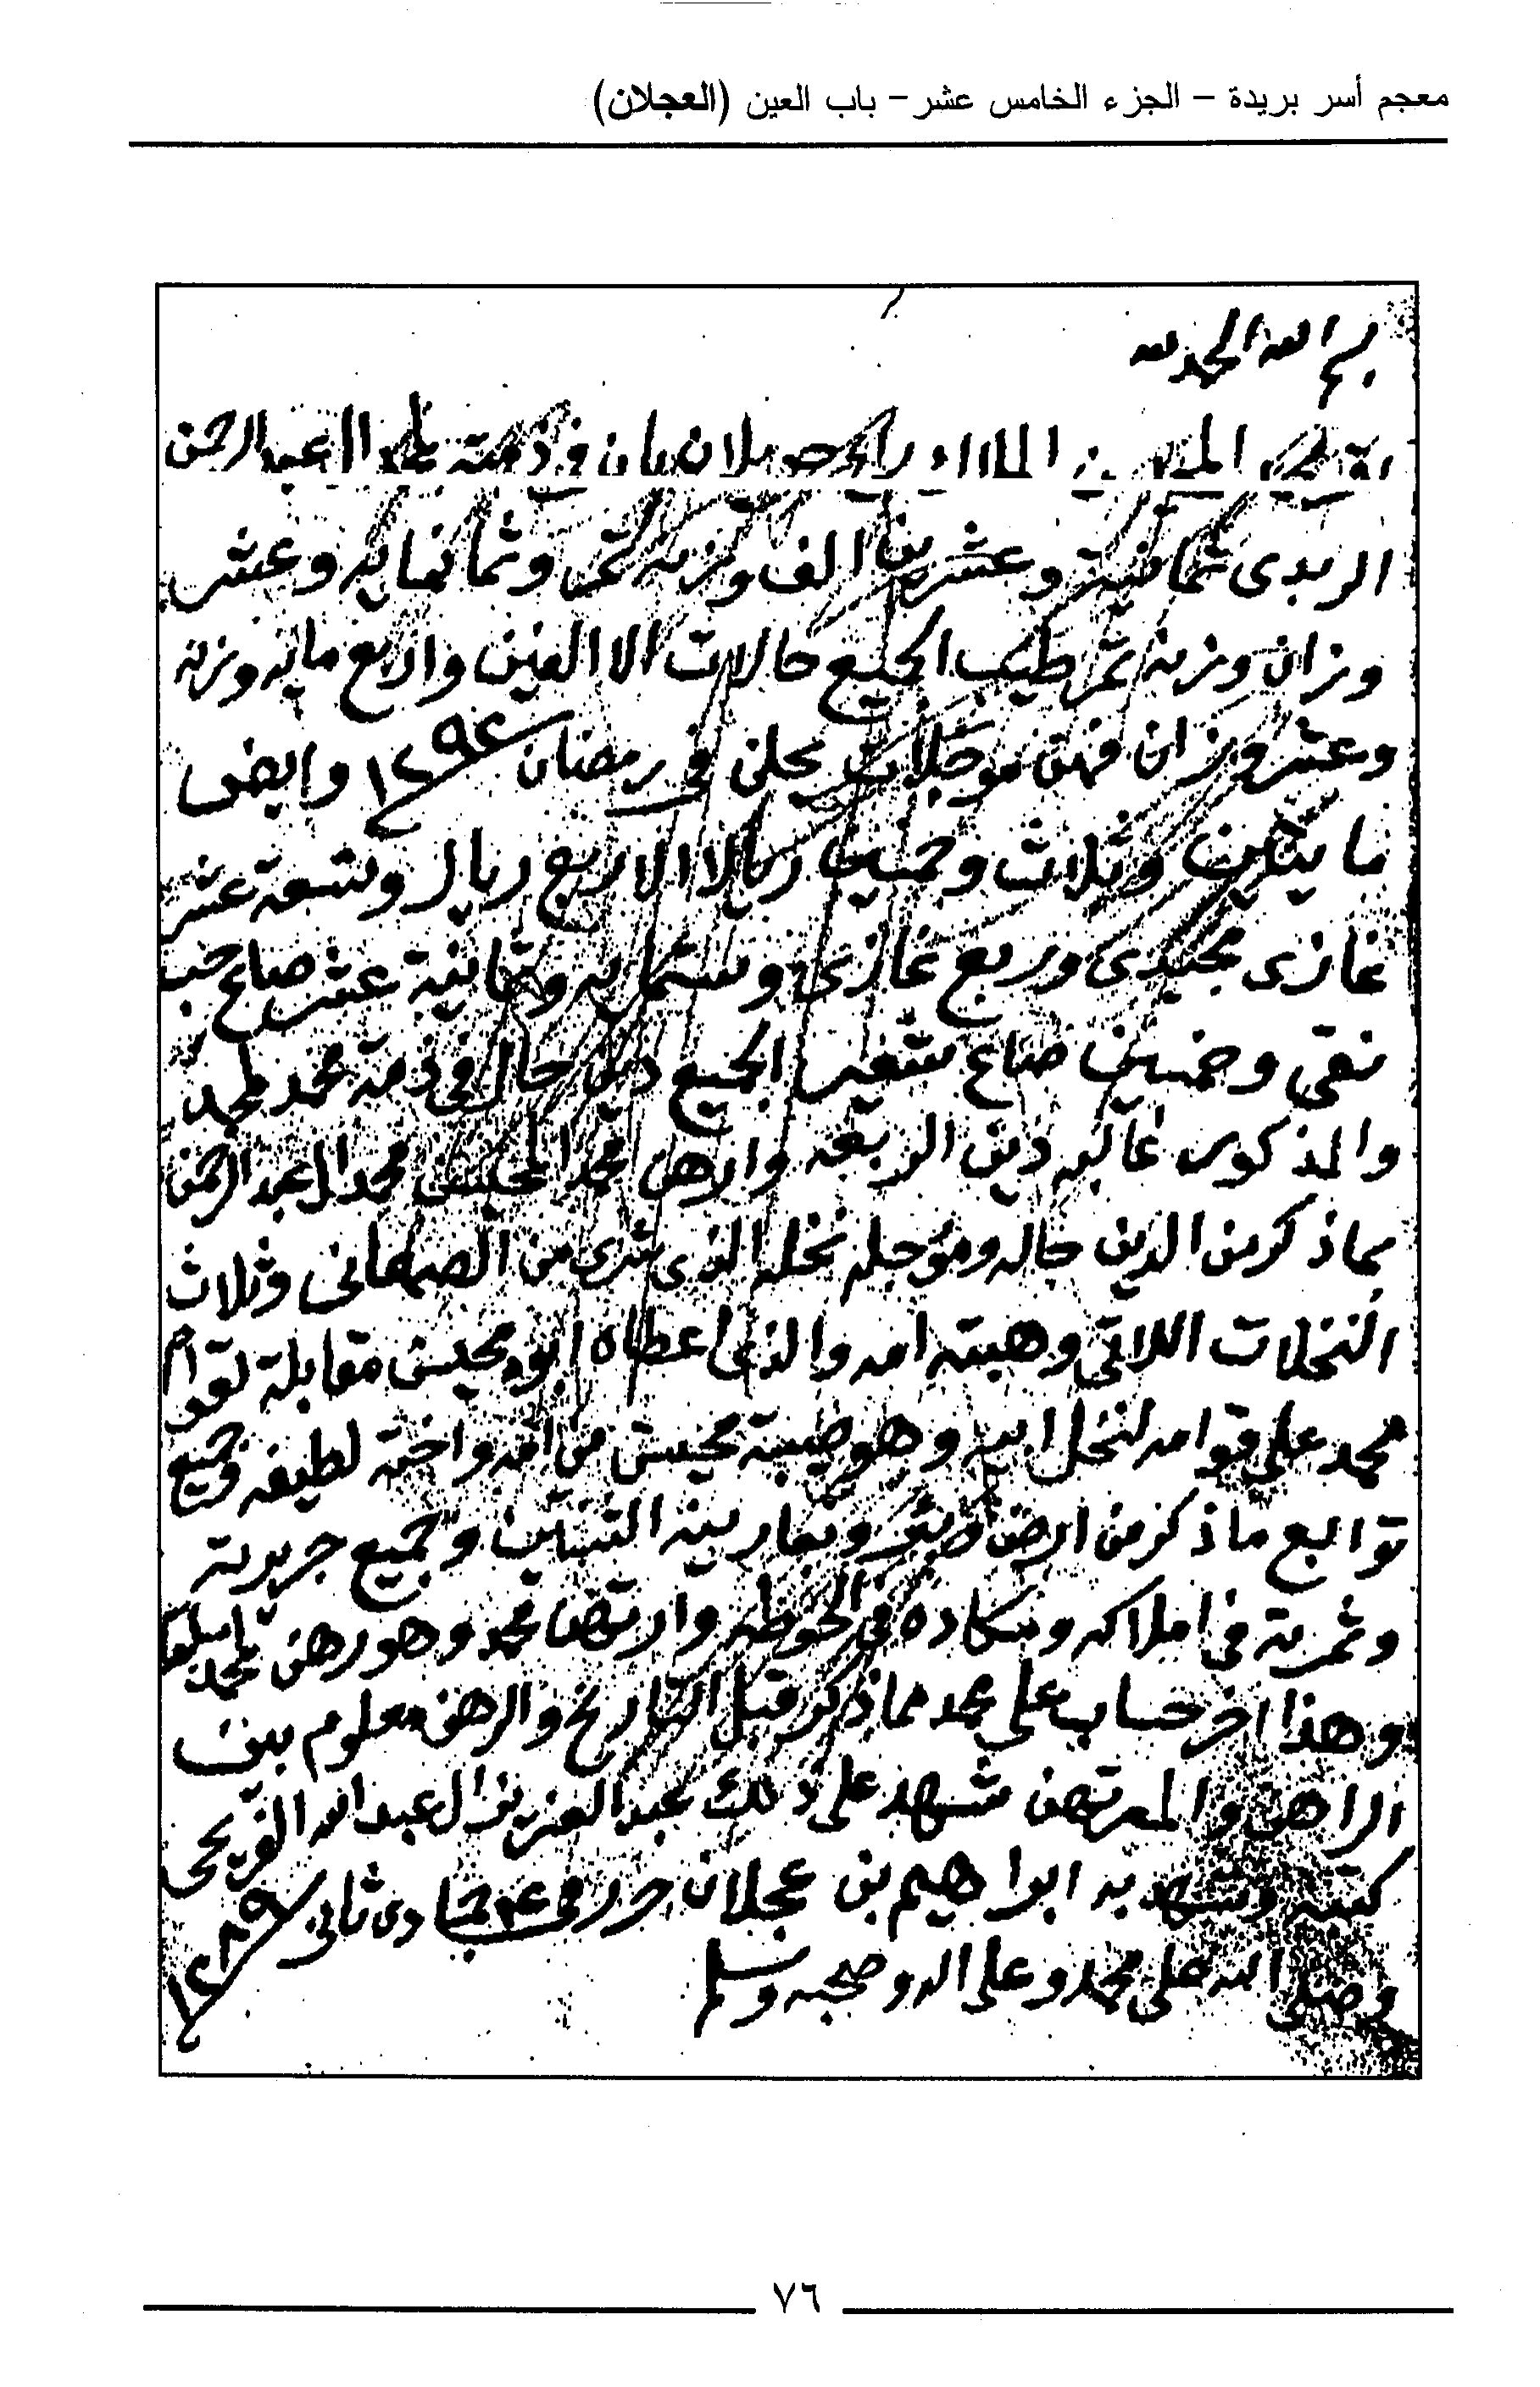 معجم أسر بريدة – الجزء الخامس عشر – باب العين (العجلان)
بسم الله الحمد لله
بان في ذمته لمحمد ال عبدالرحمن
الربدى ثمانية وعشرين الف وزنه تمر وثمانمايه وعشر
وزان وزنه تمر طيب الجميع حالات الا الفين واربع مايه وزنه
وعشر وزان فهن موجلات يحلن في رمضان ١٢٩٤ وايضى
مايتين وثلاث وخمسين ريالا الا اربع ريال وتسعة عشر
غازى مجيدى وربع غازى وستمايه وثمانية عشر صاع حب
نقى وخمسين صاع شعير الجميع دين حال في ذمة محمد لمحمد
والمذكور غالبه دين الربعه وارهن محمد المحيسن محمد ال عبدالرحمن
بماذكر من الدين حاله وموجله نخله الذى شرى من الصلحانى وثلاث
النخلات اللاتي وهبته امه والذى اعطاه ابوه محيسن مقابلة لقوام
محمد على قوامه لنخل ابيه وهو صيبة محيسن من امه واخته لطيفه وجميع
توابع ماذكر من ارض وبير وبعارينه الثنتين وجميع جريرته
وثمرته في املاكه ومكاده في الحوطه وارتهن محمد وهو رهن لمحمد سابق
وهذا اخر حساب على محمد مماذكر قبل التاريخ والرهن معلوم بين
الراهن والمرتهن شهد على ذلك عبدالعزيز ال عبدالله الفريحى
كتبه وشهد به ابراهيم بن عجلان حرر في ٤ جمادى ثانى ١٢٨٩
وصلى الله على محمد وعلى اله وصحبه وسلم
٧٦